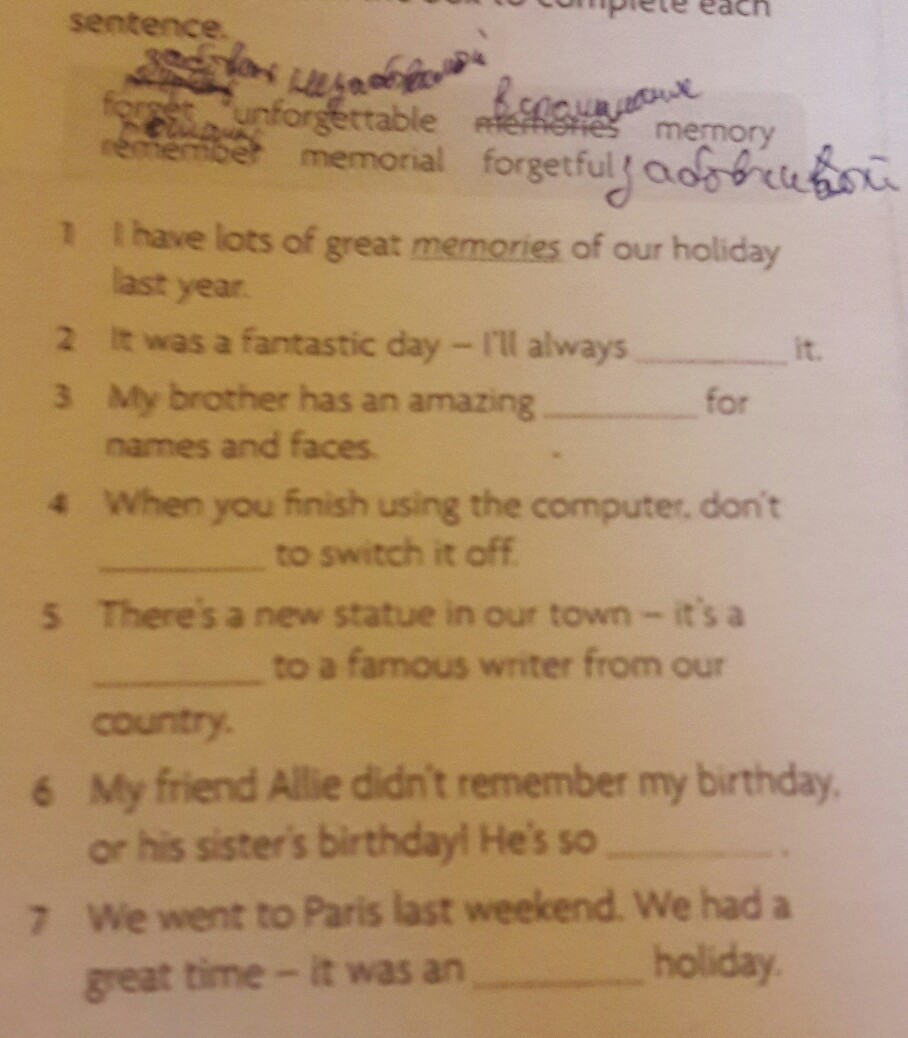 complete each
sentence.
forget unforgettable memories memory
remember memorial forgetful
1 I have lots of great memories of our holiday
last year.
2 It was a fantastic day – I'll always __________ it.
3 My brother has an amazing __________ for
names and faces.
4 When you finish using the computer, don't
__________ to switch it off.
5 There's a new statue in our town – it's a
__________ to a famous writer from our
country.
6 My friend Allie didn't remember my birthday,
or his sister's birthday! He's so __________ .
7 We went to Paris last weekend. We had a
great time – it was an __________ holiday.